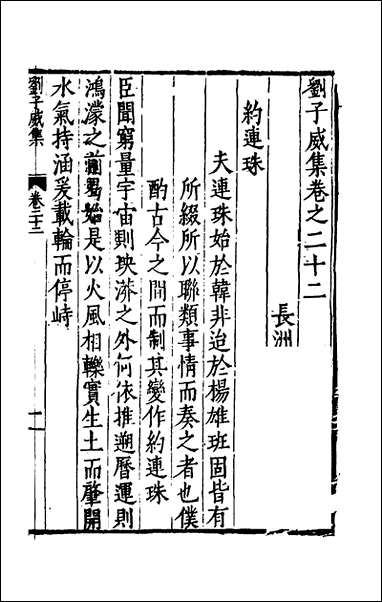 劉子威集卷之二十二
長洲
約連珠
夫連珠始於韓非迨於楊雄班固皆有
所綴所以聯類事情而奏之者也僕
酌古今之間而制其變作約連珠
臣聞窮量宇宙則坱漭之外何依推遡曆運則
鴻濛之前曷始是以火風相轢實生土而肇開
水氣持涵爰載輪而停峙
劉子威集
卷二十二
一